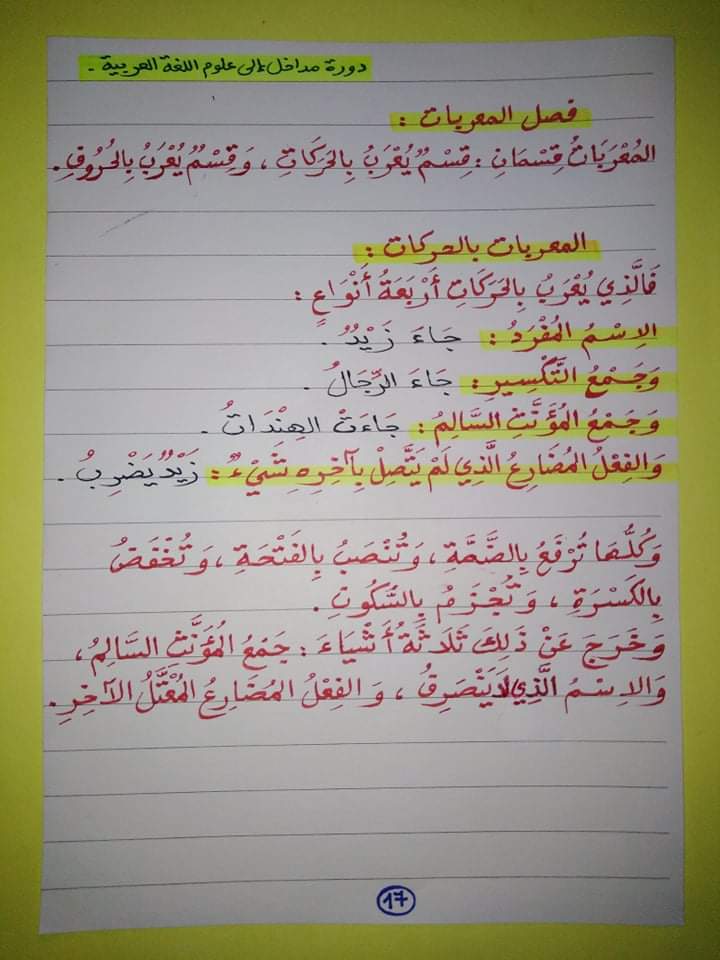 دورة مداخل إلى علوم اللغة العربية .
فصل المعربات :
المُعْرَبَاتُ قِسْمَانِ : قِسْمٌ يُعْرَبُ بِالحَرَكَاتِ ، وَقِسْمٌ يُعْرَبُ بِالحُرُوفِ .
المعربات بالحركات :
فَالَّذِي يُعْرَبُ بِالحَرَكَاتِ أَرْبَعَةُ أَنْوَاعٍ :
الِاسْمُ المُفْرَدُ : جَاءَ زَيْدٌ .
وَجَمْعُ التَّكْسِيرِ : جَاءَ الرِّجَالُ .
وَجَمْعُ المُؤَنَّثِ السَّالِمُ : جَاءَتْ الهِنْدَاتُ .
وَالفِعْلُ المُضَارِعُ الَّذِي لَمْ يَتَّصِلْ بِآخِرِهِ شَيْءٌ : زَيْدٌ يَضْرِبُ .
وَكُلُّهَا تُرْفَعُ بِالضَّمَّةِ ، وَتُنْصَبُ بِالفَتْحَةِ ، وَتُخْفَضُ
بِالكَسْرَةِ ، وَتُجْزَمُ بِالسُّكُونِ .
وَخَرَجَ عَنْ ذَلِكَ ثَلَاثَةُ أَشْيَاءَ : جَمْعُ المُؤَنَّثِ السَّالِمُ ،
وَالِاسْمُ الَّذِي لَا يَنْصَرِفُ ، وَالفِعْلُ المُضَارِعُ المُعْتَلُّ الآخِرِ .
17